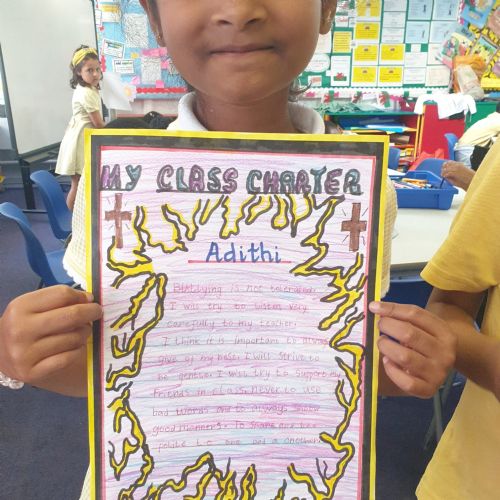 MY CLASS CHARTER
Adithi
Bullying is not tolerated.
I will try to listen very
carefully to my teacher.
I think it is important to always
give of my best. I will strive to
be gentle. I will try to support my
friends in class. Never to use
bad words and to always show
good manners. To share and be
polite t.c one and a another